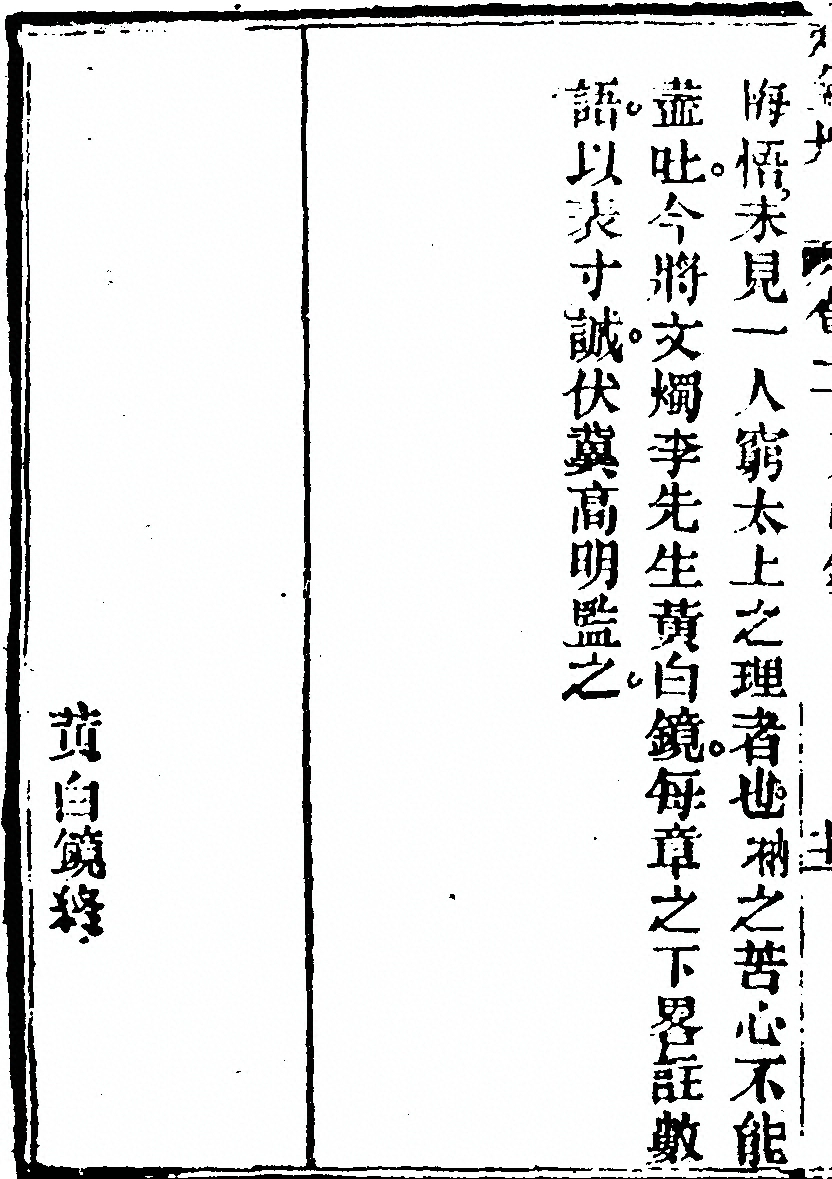 悔悟未見一人窮太上之理者也衲之苦心不能
盡吐。今將文燭李先生黃白鏡。每章之下畧註數
語。以表寸誠。伏冀高明監之。
黃白鏡終